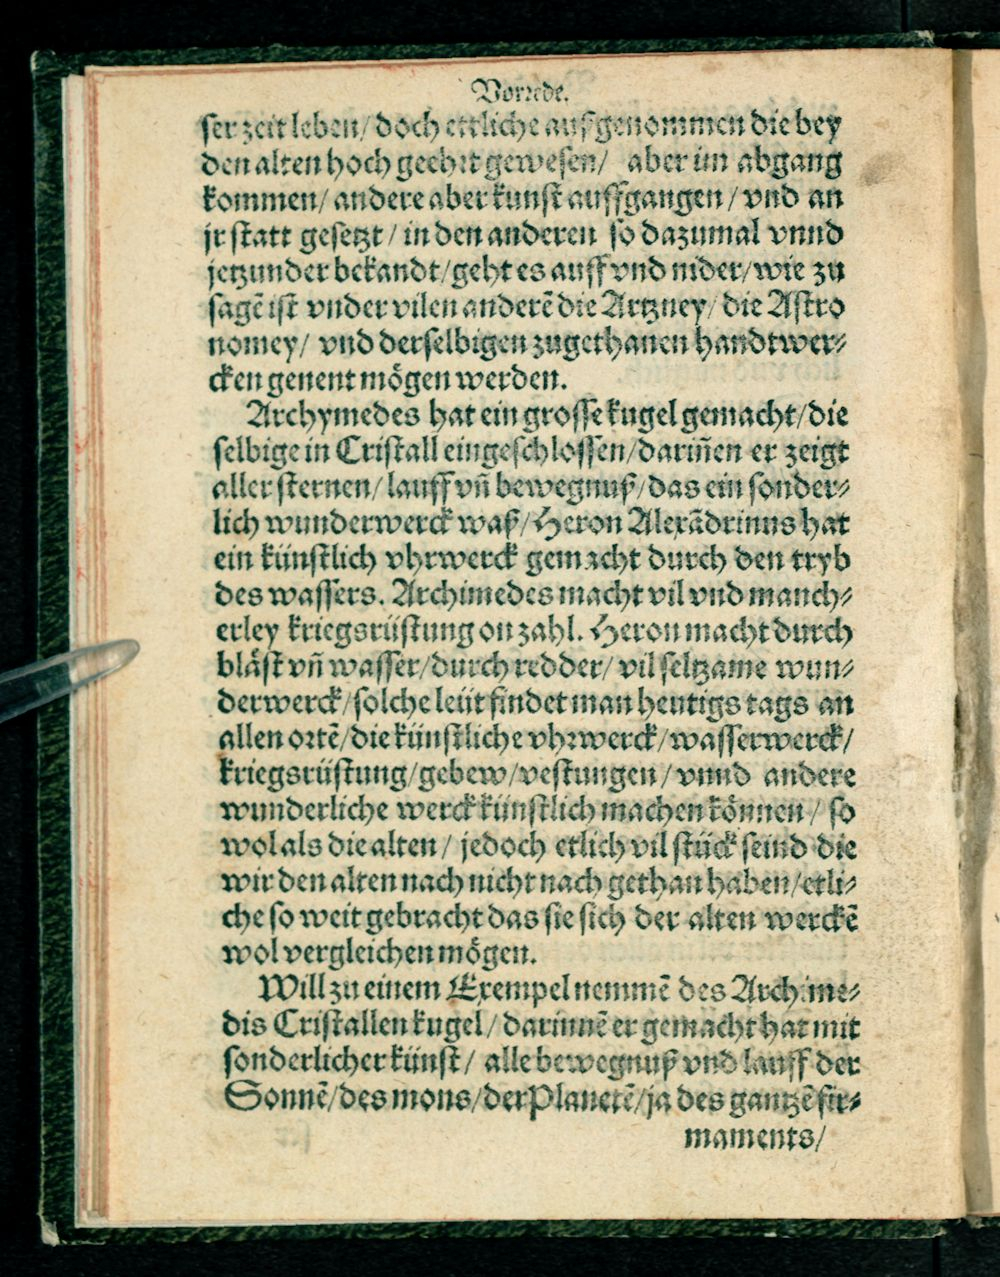 Vorrede.
ser zeit leben/ doch ettliche aufgenommen die bey
den alten hoch geehrt gewesen/ aber im abgang
kommen/ andere aber kunst auffgangen/ vnd an
jr statt gesetzt/ in den anderen so dazumal vnnd
jetzunder bekandt/ geht es auff vnd nider/ wie zu
sagẽ ist vnder vilen anderẽ die Artzney/ die Astro
nomey/ vnd derselbigen zugethanen handtwer-
cken genent mögen werden.
Archymedes hat ein grosse kugel gemacht/ die
selbige in Cristall eingeschlossen/ dariñen er zeigt
aller sternen/ lauff vñ bewegnuß/ das ein sonder-
lich wunderwerck waß/ Heron Alexãdrinus hat
ein künstlich vhrwerck gemacht durch den tryb
des wassers. Archimedes macht vil vnd manch-
erley kriegsrüstung on zahl. Heron macht durch
bläst vñ wasser/ durch redder/ vil seltzame wun-
derwerck/ solche leüt findet man heutigs tags an
allen ortẽ/ die künstliche vhrwerck/ wasserwerck/
kriegsrüstung/ gebew/ vestungen/ vnnd andere
wunderliche werck künstlich machen können/ so
wol als die alten/ jedoch etlich vil stück seind die
wir den alten nach nicht nach gethan haben/ etli-
che so weit gebracht das sie sich der alten werckẽ
wol vergleichen mögen.
Will zu einem Exempel nemmẽ des Archime-
dis Cristallen kugel/ darinnẽ er gemacht hat mit
sonderlicher künst/ alle bewegnuß vnd lauff der
Sonnẽ/ des mons/ der Planetẽ/ ja des gantzẽ fir-
maments/